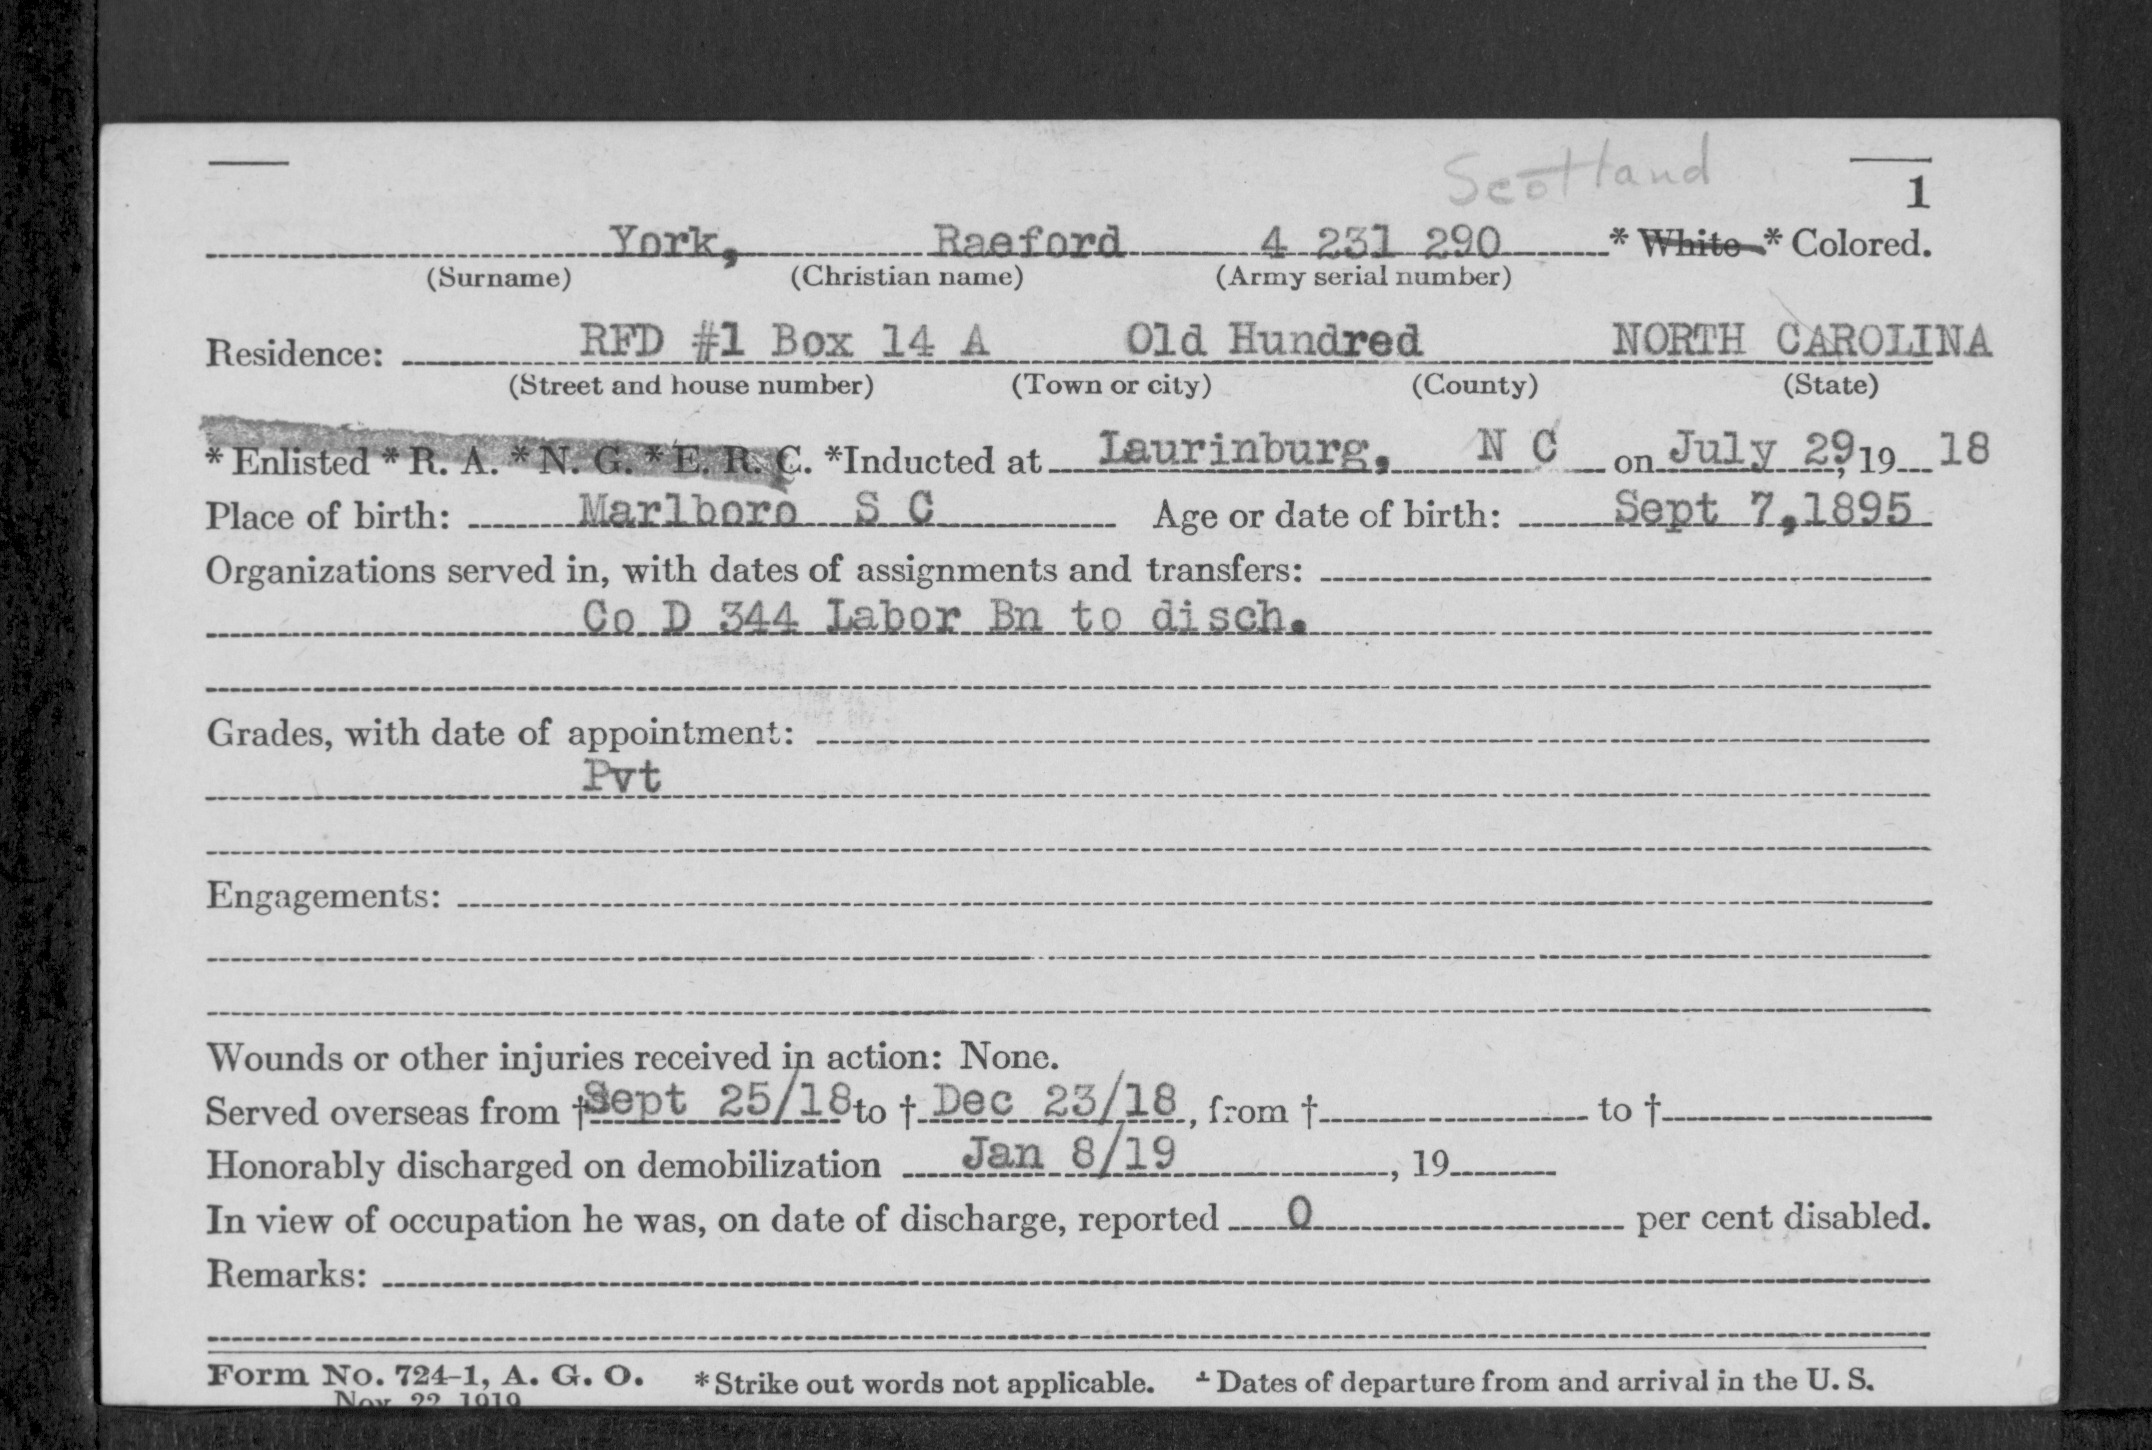 Scotland
1
York, Raeford 4 231 290 * White * Colored.
(Surname) (Christian name) (Army serial number)
Residence: RFD #1 Box 14 A Old Hundred NORTH CAROLINA
(Street and house number) (Town or city) (County) (State)
* Enlisted * R. A. * N. G. * E. R. C. *Inducted at Laurinburg, N C on July 29, 19 18
Place of birth: Marlboro S C Age or date of birth: Sept 7, 1895
Organizations served in, with dates of assignments and transfers:
Co D 344 Labor Bn to disch.
Grades, with date of appointment:
Pvt
Engagements:
Wounds or other injuries received in action: None.
Served overseas from † Sept 25/18 to † Dec 23/18, from † to †
Honorably discharged on demobilization Jan 8/19, 19
In view of occupation he was, on date of discharge, reported 0 per cent disabled.
Remarks:
Form No. 724-1, A. G. O. * Strike out words not applicable. † Dates of departure from and arrival in the U. S.
Nov. 22, 1919